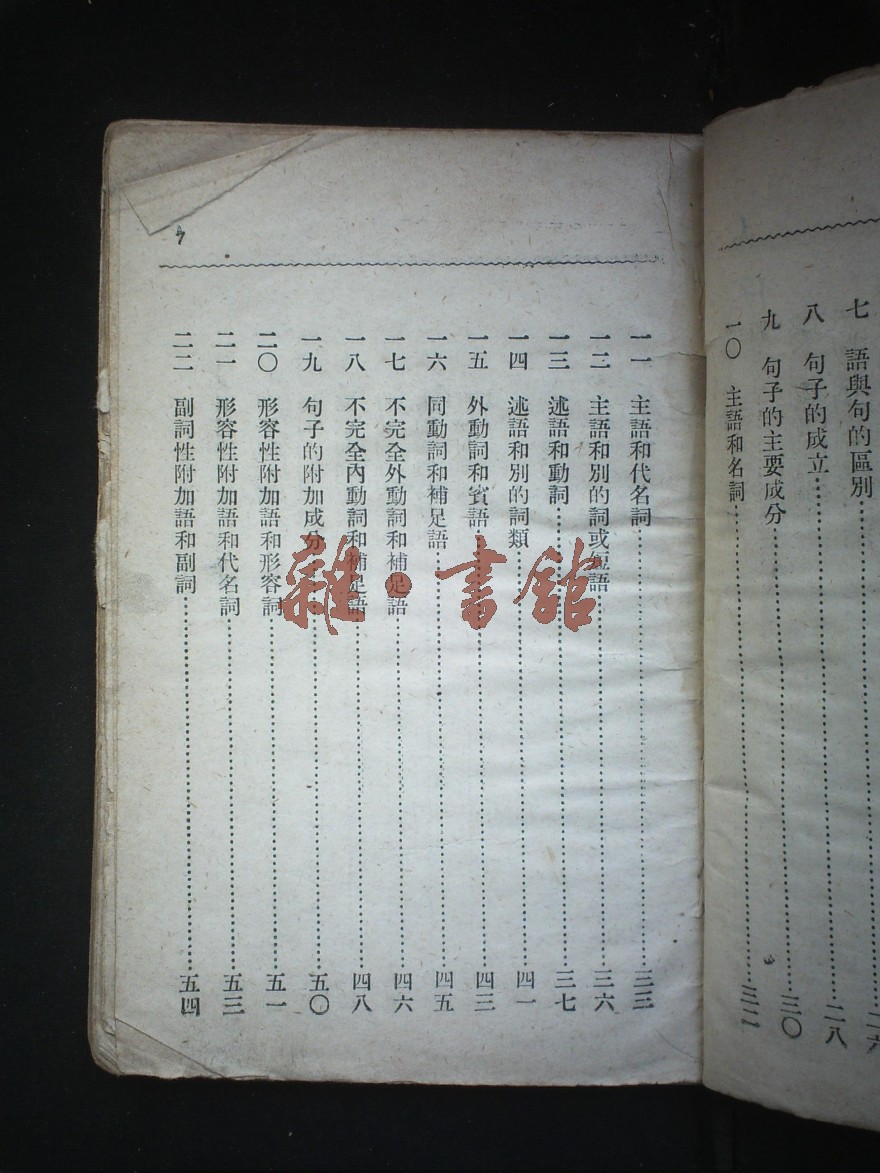 七 語與句的區別……二六
八 句子的成立……二八
九 句子的主要成分……三〇
一〇 主語和名詞……三二
一一 主語和代名詞……三三
一二 主語和別的詞或短語……三六
一三 述語和動詞……三七
一四 述語和別的詞類……四一
一五 外動詞和賓語……四三
一六 同動詞和補足語……四五
一七 不完全外動詞和補足語……四六
一八 不完全內動詞和補足語……四八
一九 句子的附加成分……五〇
二〇 形容性附加語和形容詞……五一
二一 形容性附加語和代名詞……五三
二二 副詞性附加語和副詞……五四
雜·書館